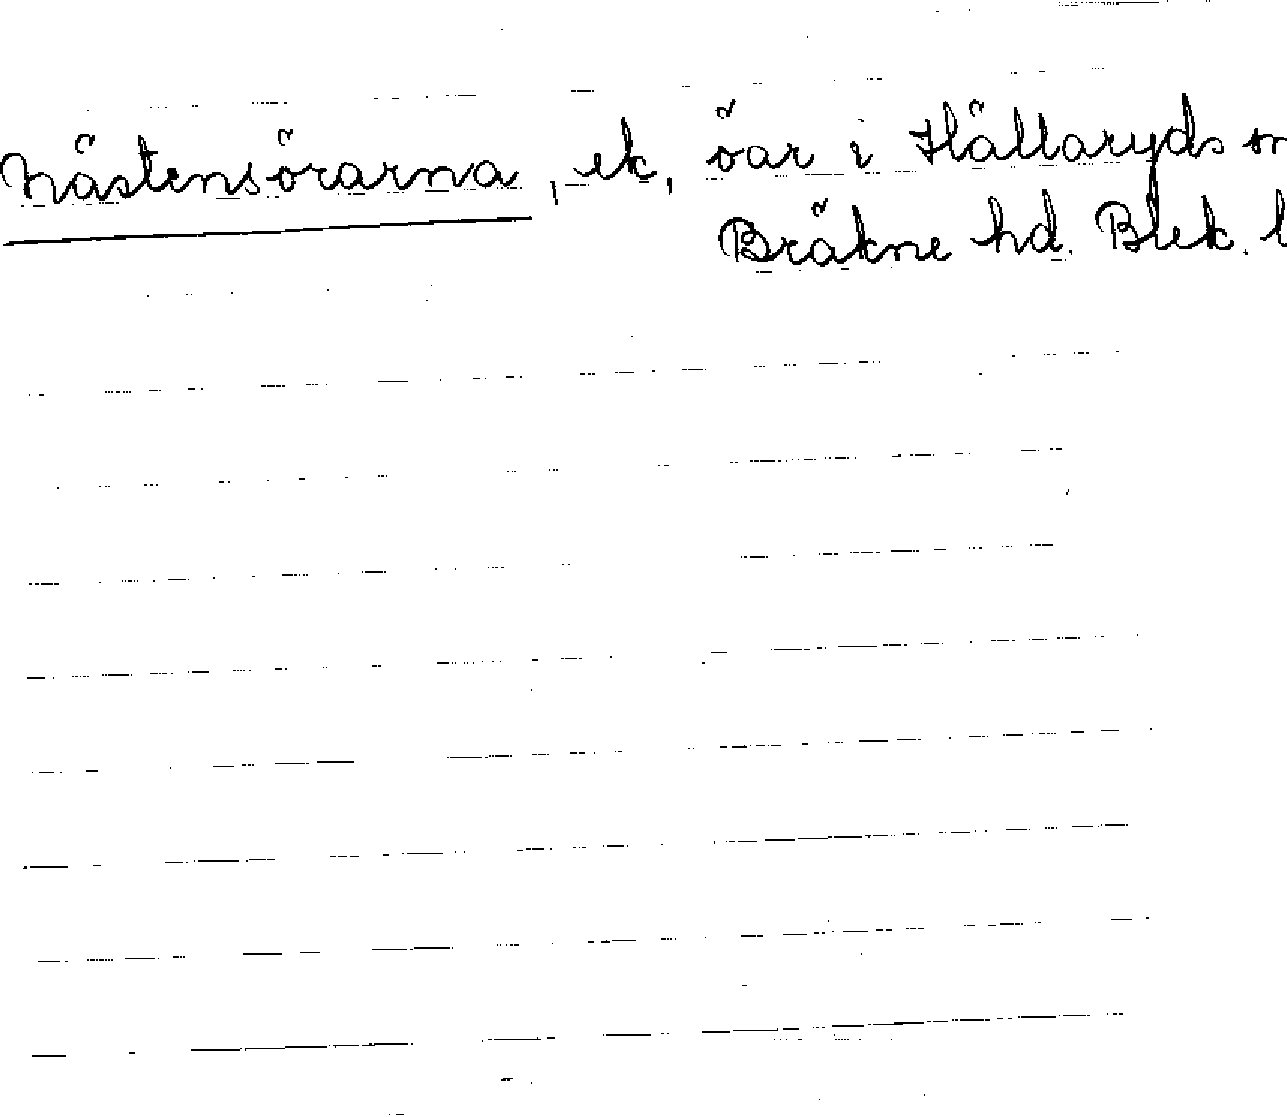 Nästensörarna, ek, öar i Hällaryds sn
Bräkne hd. Blek. l